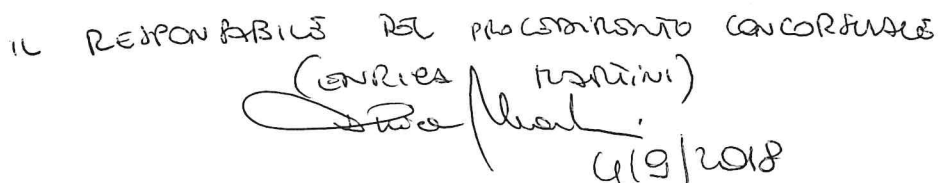 IL RESPONSABILE DEL PROCEDIMENTO CONCORSUALE
(ENRICA MARTINI)
Enrica Martini
4/9/2018